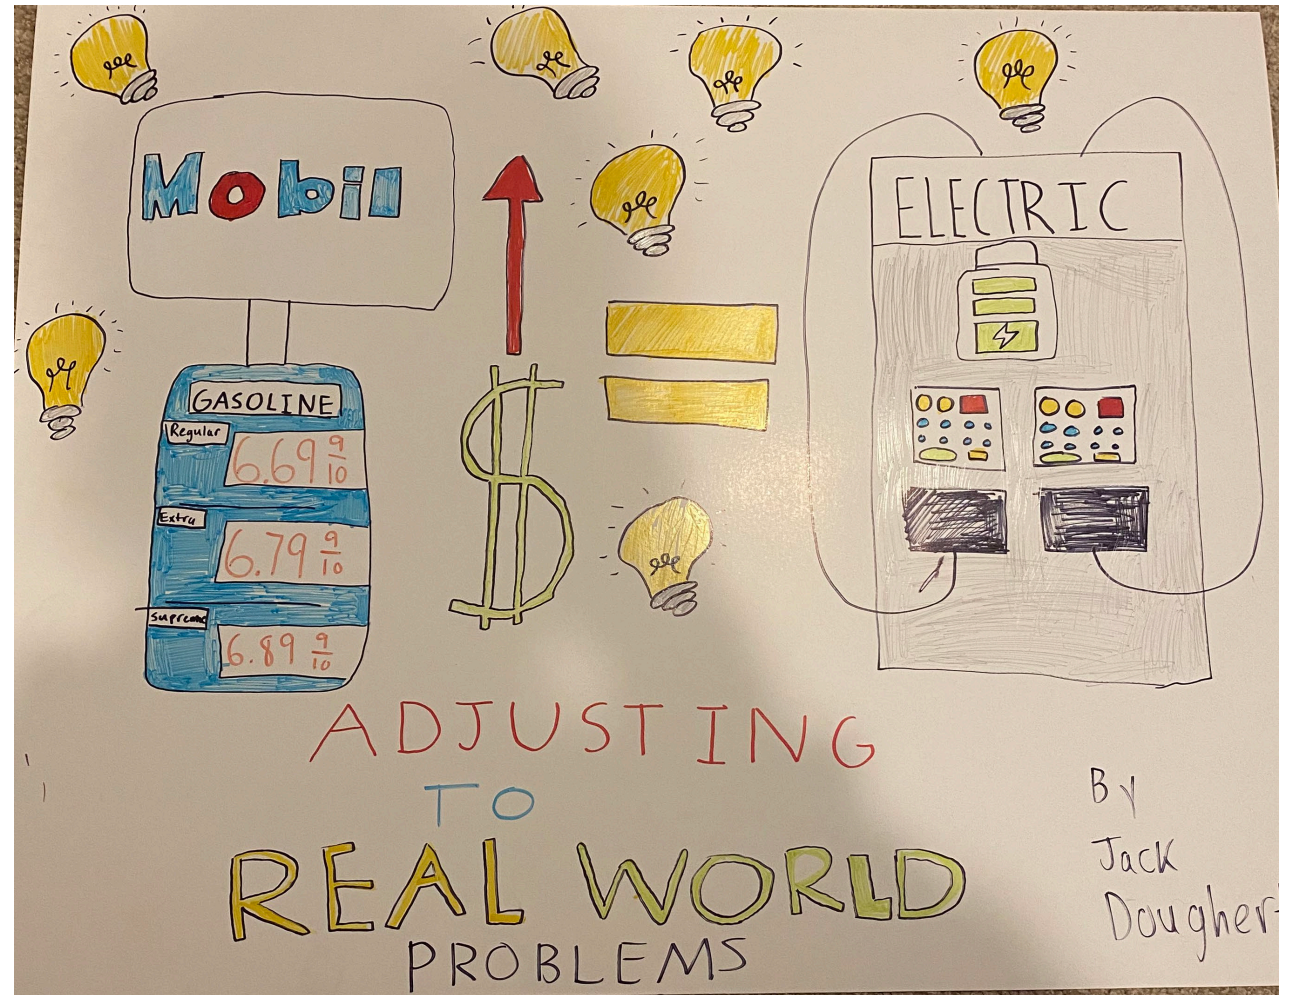 Mobil
GASOLINE
Regular
6.69 9/10
Extra
6.79 9/10
Supreme
6.89 9/10
$
=
ELECTRIC
ADJUSTING
TO
REAL WORLD
PROBLEMS
By
Jack
Dougher